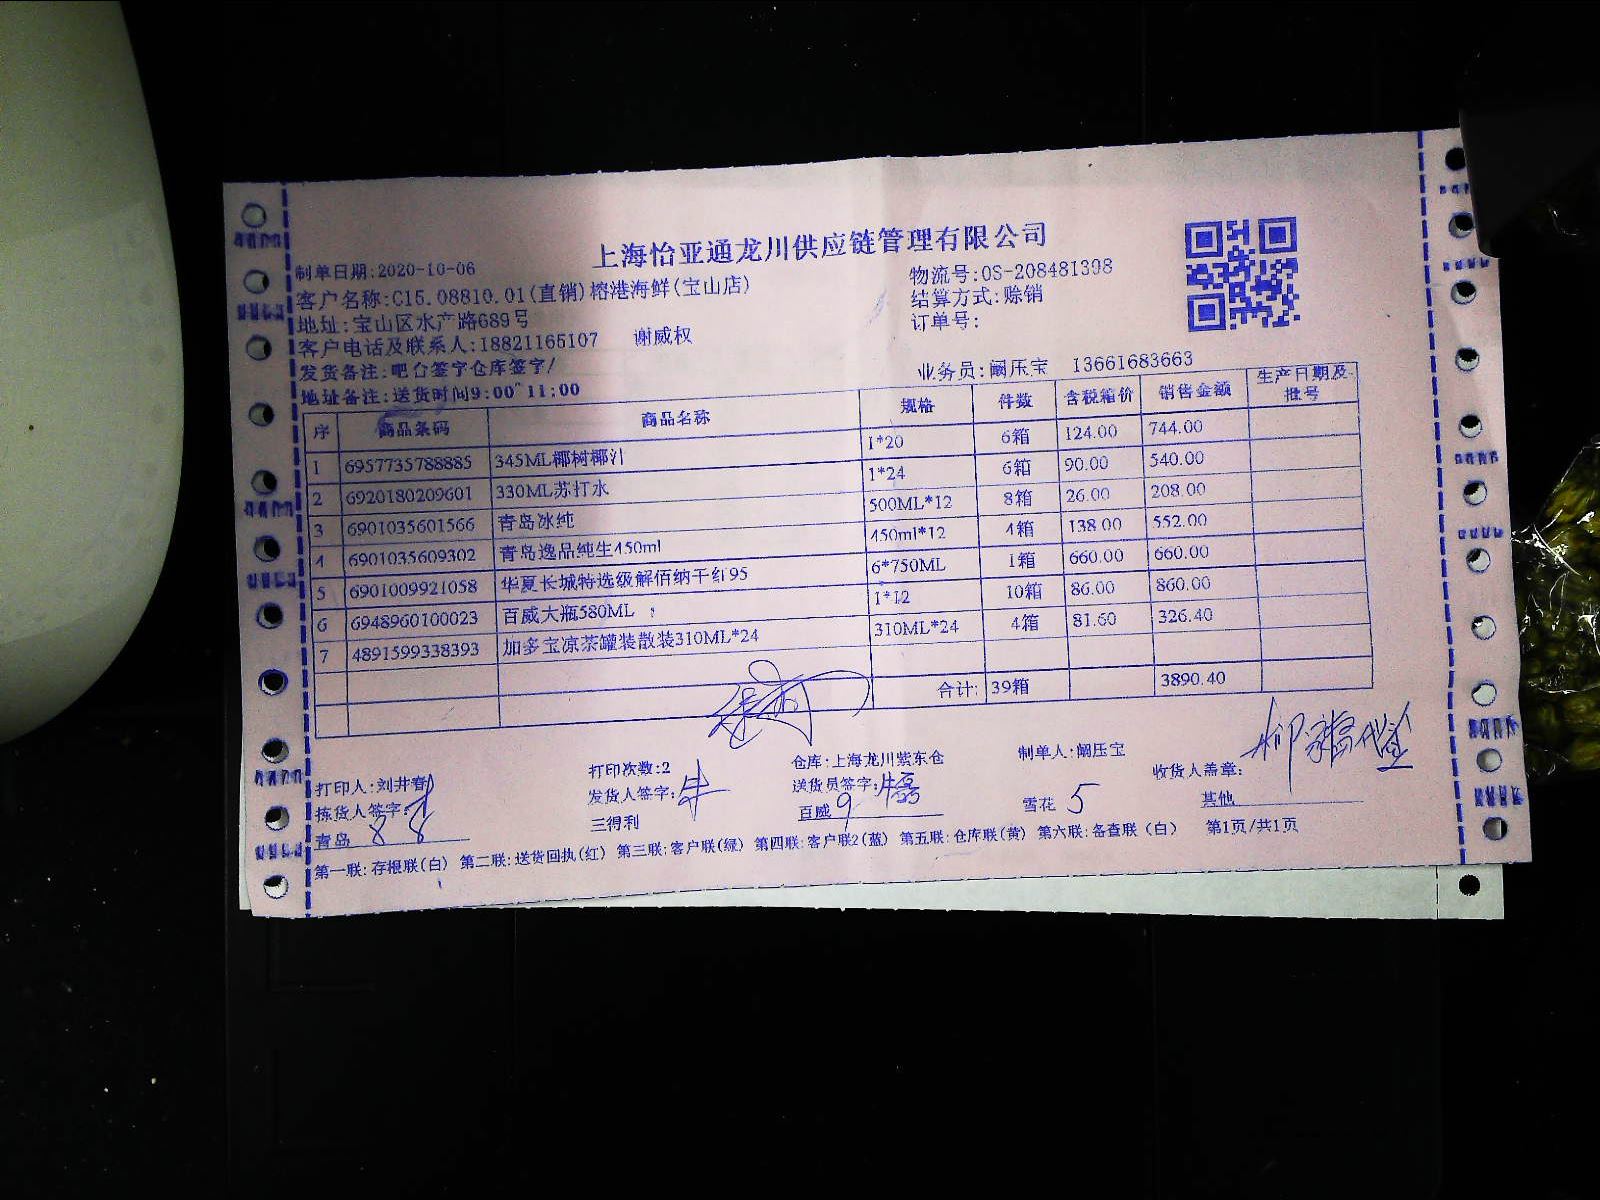 上海怡亚通龙川供应链管理有限公司
制单日期:2020-10-06
物流号:OS-208481398
客户名称:C15.08810.01(直销)榕港海鲜(宝山店)
结算方式:赊销
地址:宝山区水产路689号
订单号:
客户电话及联系人:18821165107 谢威权
发货备注:吧台签字仓库签字/
业务员:阚压宝 13661683663
地址备注:送货时间9:00~11:00
序 商品条码 商品名称 规格 件数 含税箱价 销售金额 生产日期及批号
1 6957735788885 345ML椰树椰汁 1*20 6箱 124.00 744.00
2 6920180209601 330ML苏打水 1*24 6箱 90.00 540.00
3 6901035601566 青岛冰纯 500ML*12 8箱 26.00 208.00
4 6901035609302 青岛逸品纯生450ml 450ml*12 4箱 138.00 552.00
5 6901009921058 华夏长城特选级解佰纳干红95 6*750ML 1箱 660.00 660.00
6 6948960100023 百威大瓶580ML 1*12 10箱 86.00 860.00
7 4891599338393 加多宝凉茶罐装散装310ML*24 310ML*24 4箱 81.60 326.40
合计: 39箱 3890.40
打印人:刘井春 打印次数:2 仓库:上海龙川紫东仓 制单人:阚压宝 收货人盖章:
拣货人签字: 发货人签字:牛 送货员签字:牛磊
青岛 8 8 三得利 百威 9 雪花 5 其他
第一联:存根联(白) 第二联:送货回执(红) 第三联:客户联(绿) 第四联:客户联2(蓝) 第五联:仓库联(黄) 第六联:备查联(白) 第1页/共1页